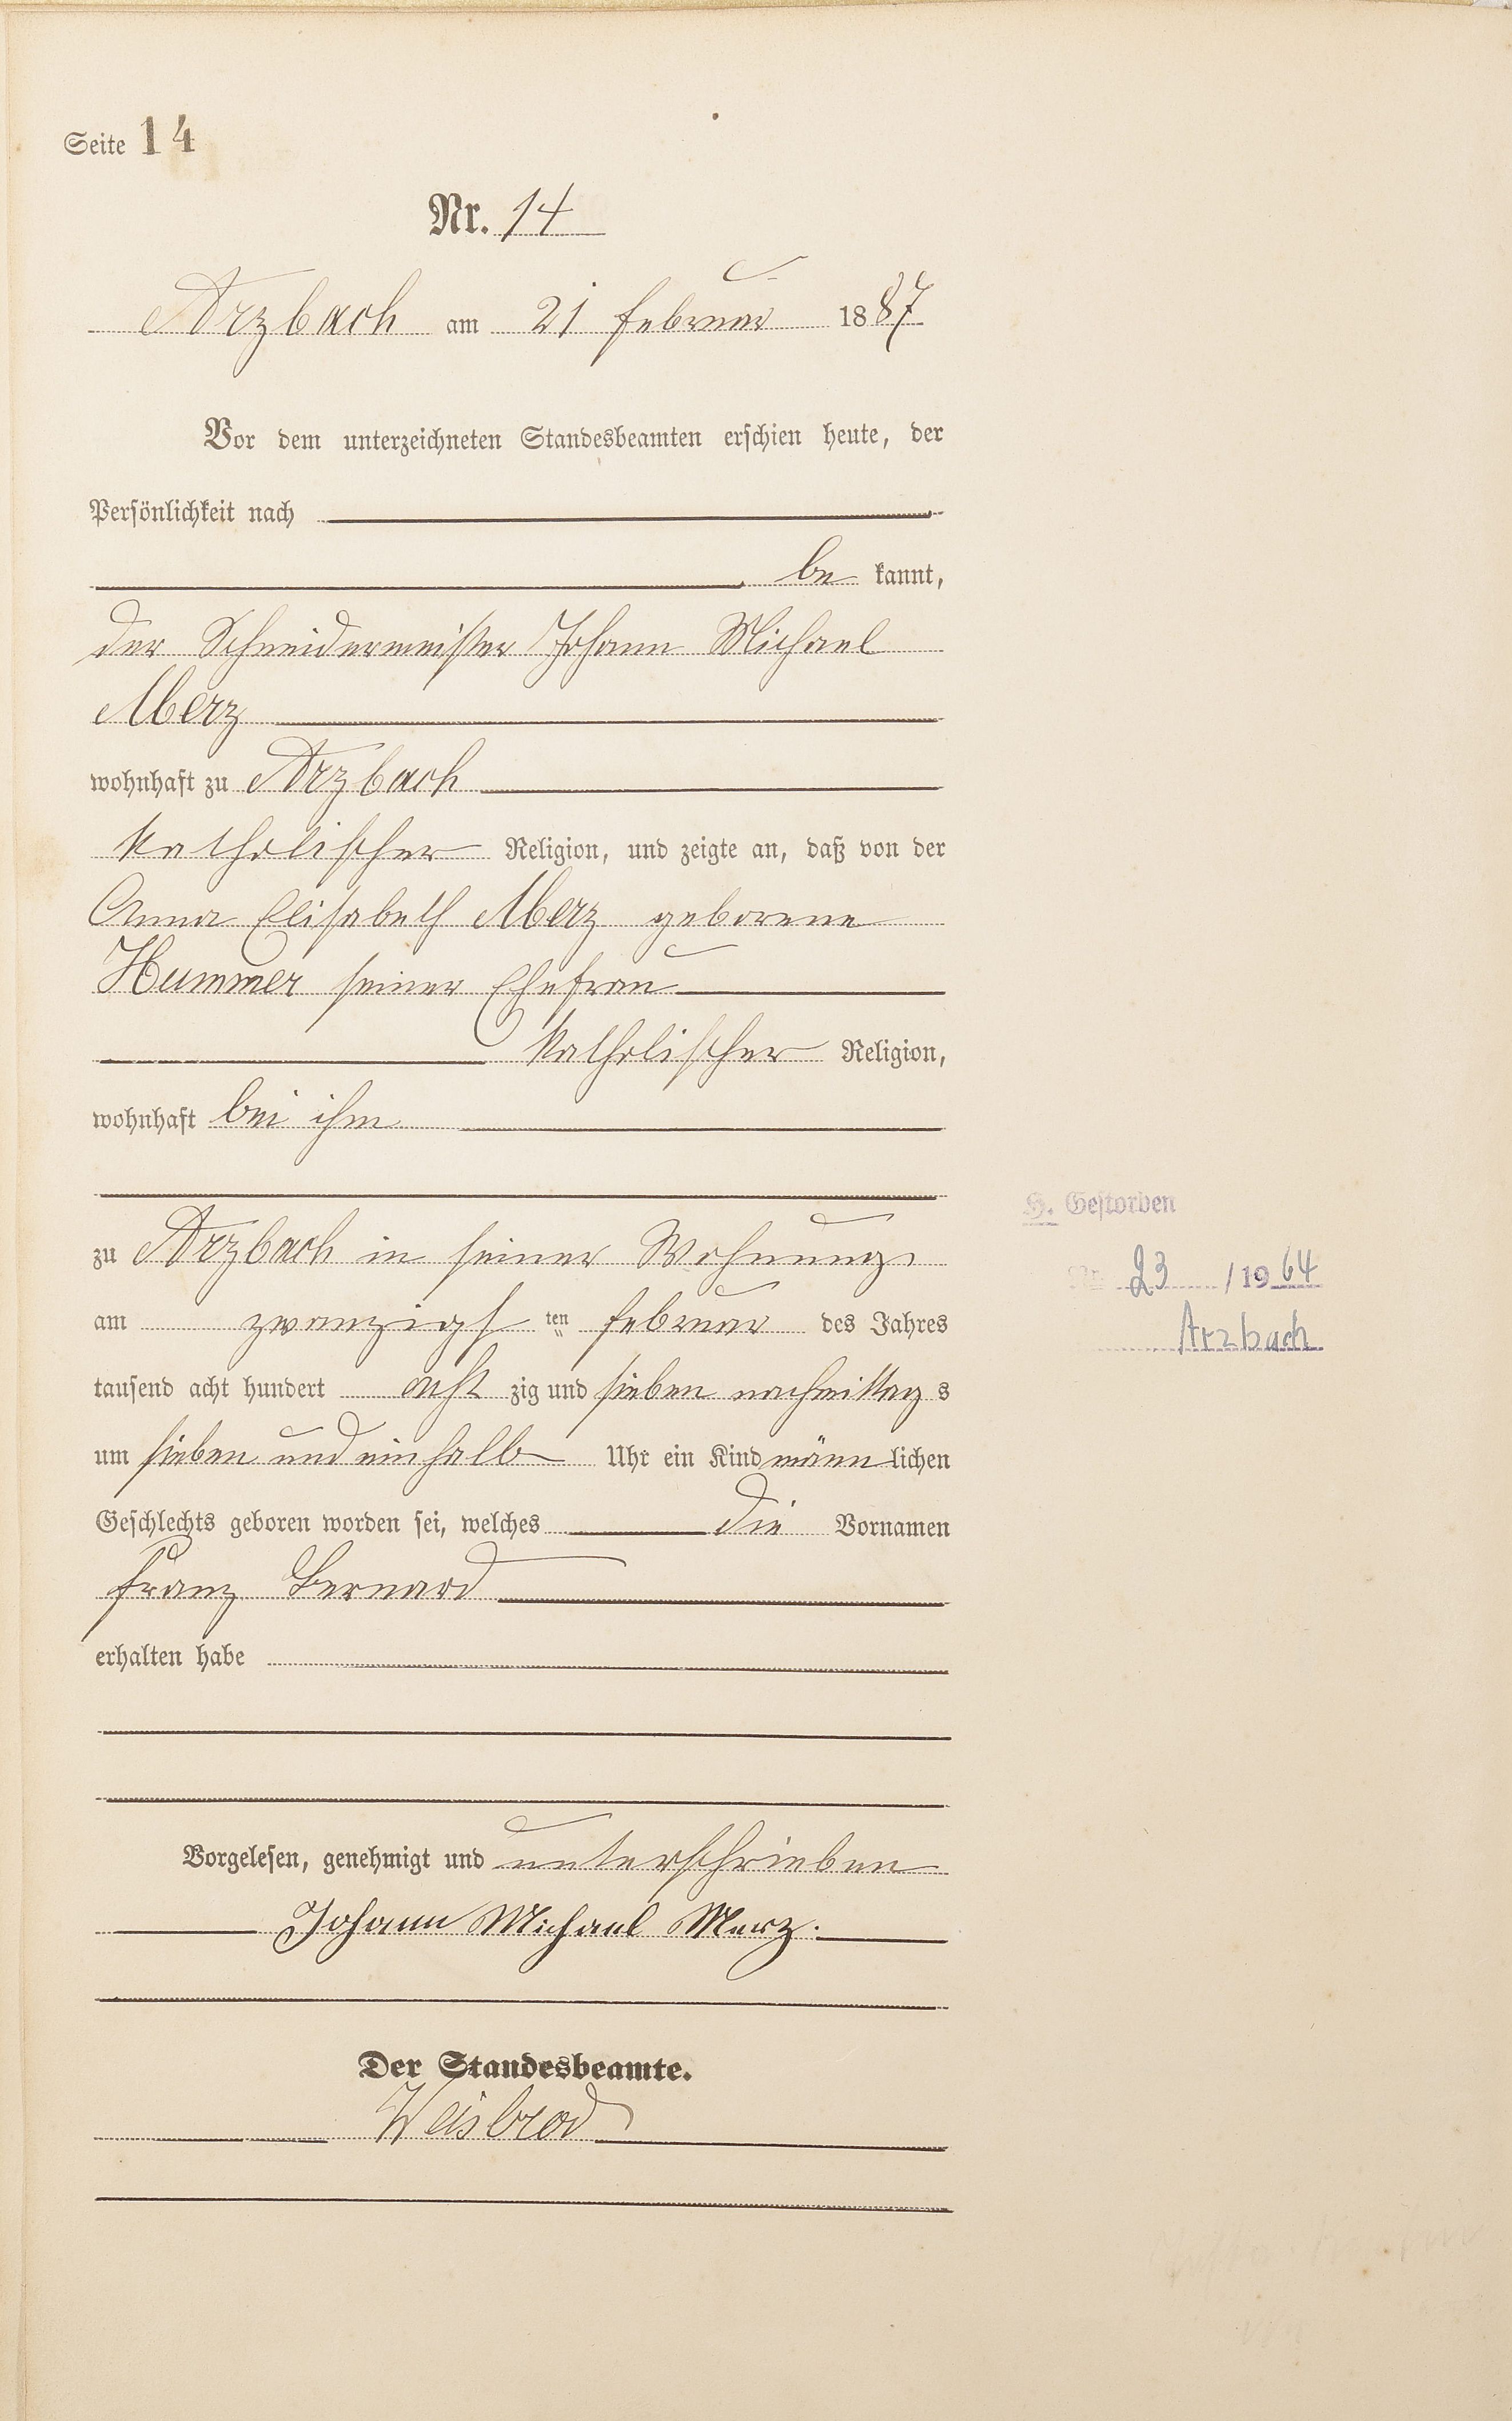 Seite 14
Nr. 14
Arzbach am 21 Februar 1887
Vor dem unterzeichneten Standesbeamten erschien heute, der
Persönlichkeit nach
be kannt,
der Schneidermeister Johann Michael
Merz
wohnhaft zu Arzbach
katholischer Religion, und zeigte an, daß von der
Anna Elisabeth Merz geborene
Hummer seiner Ehefrau
katholischer Religion,
wohnhaft bei ihm
zu Arzbach in seiner Wohnung
am zwanzigst ten Februar des Jahres
tausend acht hundert acht zig und sieben nachmittag s
um sieben und ein halb Uhr ein Kind männ lichen
Geschlechts geboren worden sei, welches die Vornamen
Franz Bernard
erhalten habe
Vorgelesen, genehmigt und unterschrieben
Johann Michael Merz.
Der Standesbeamte.
Weisbrod
H. Gestorben
Nr. 23 / 1964
Arzbach